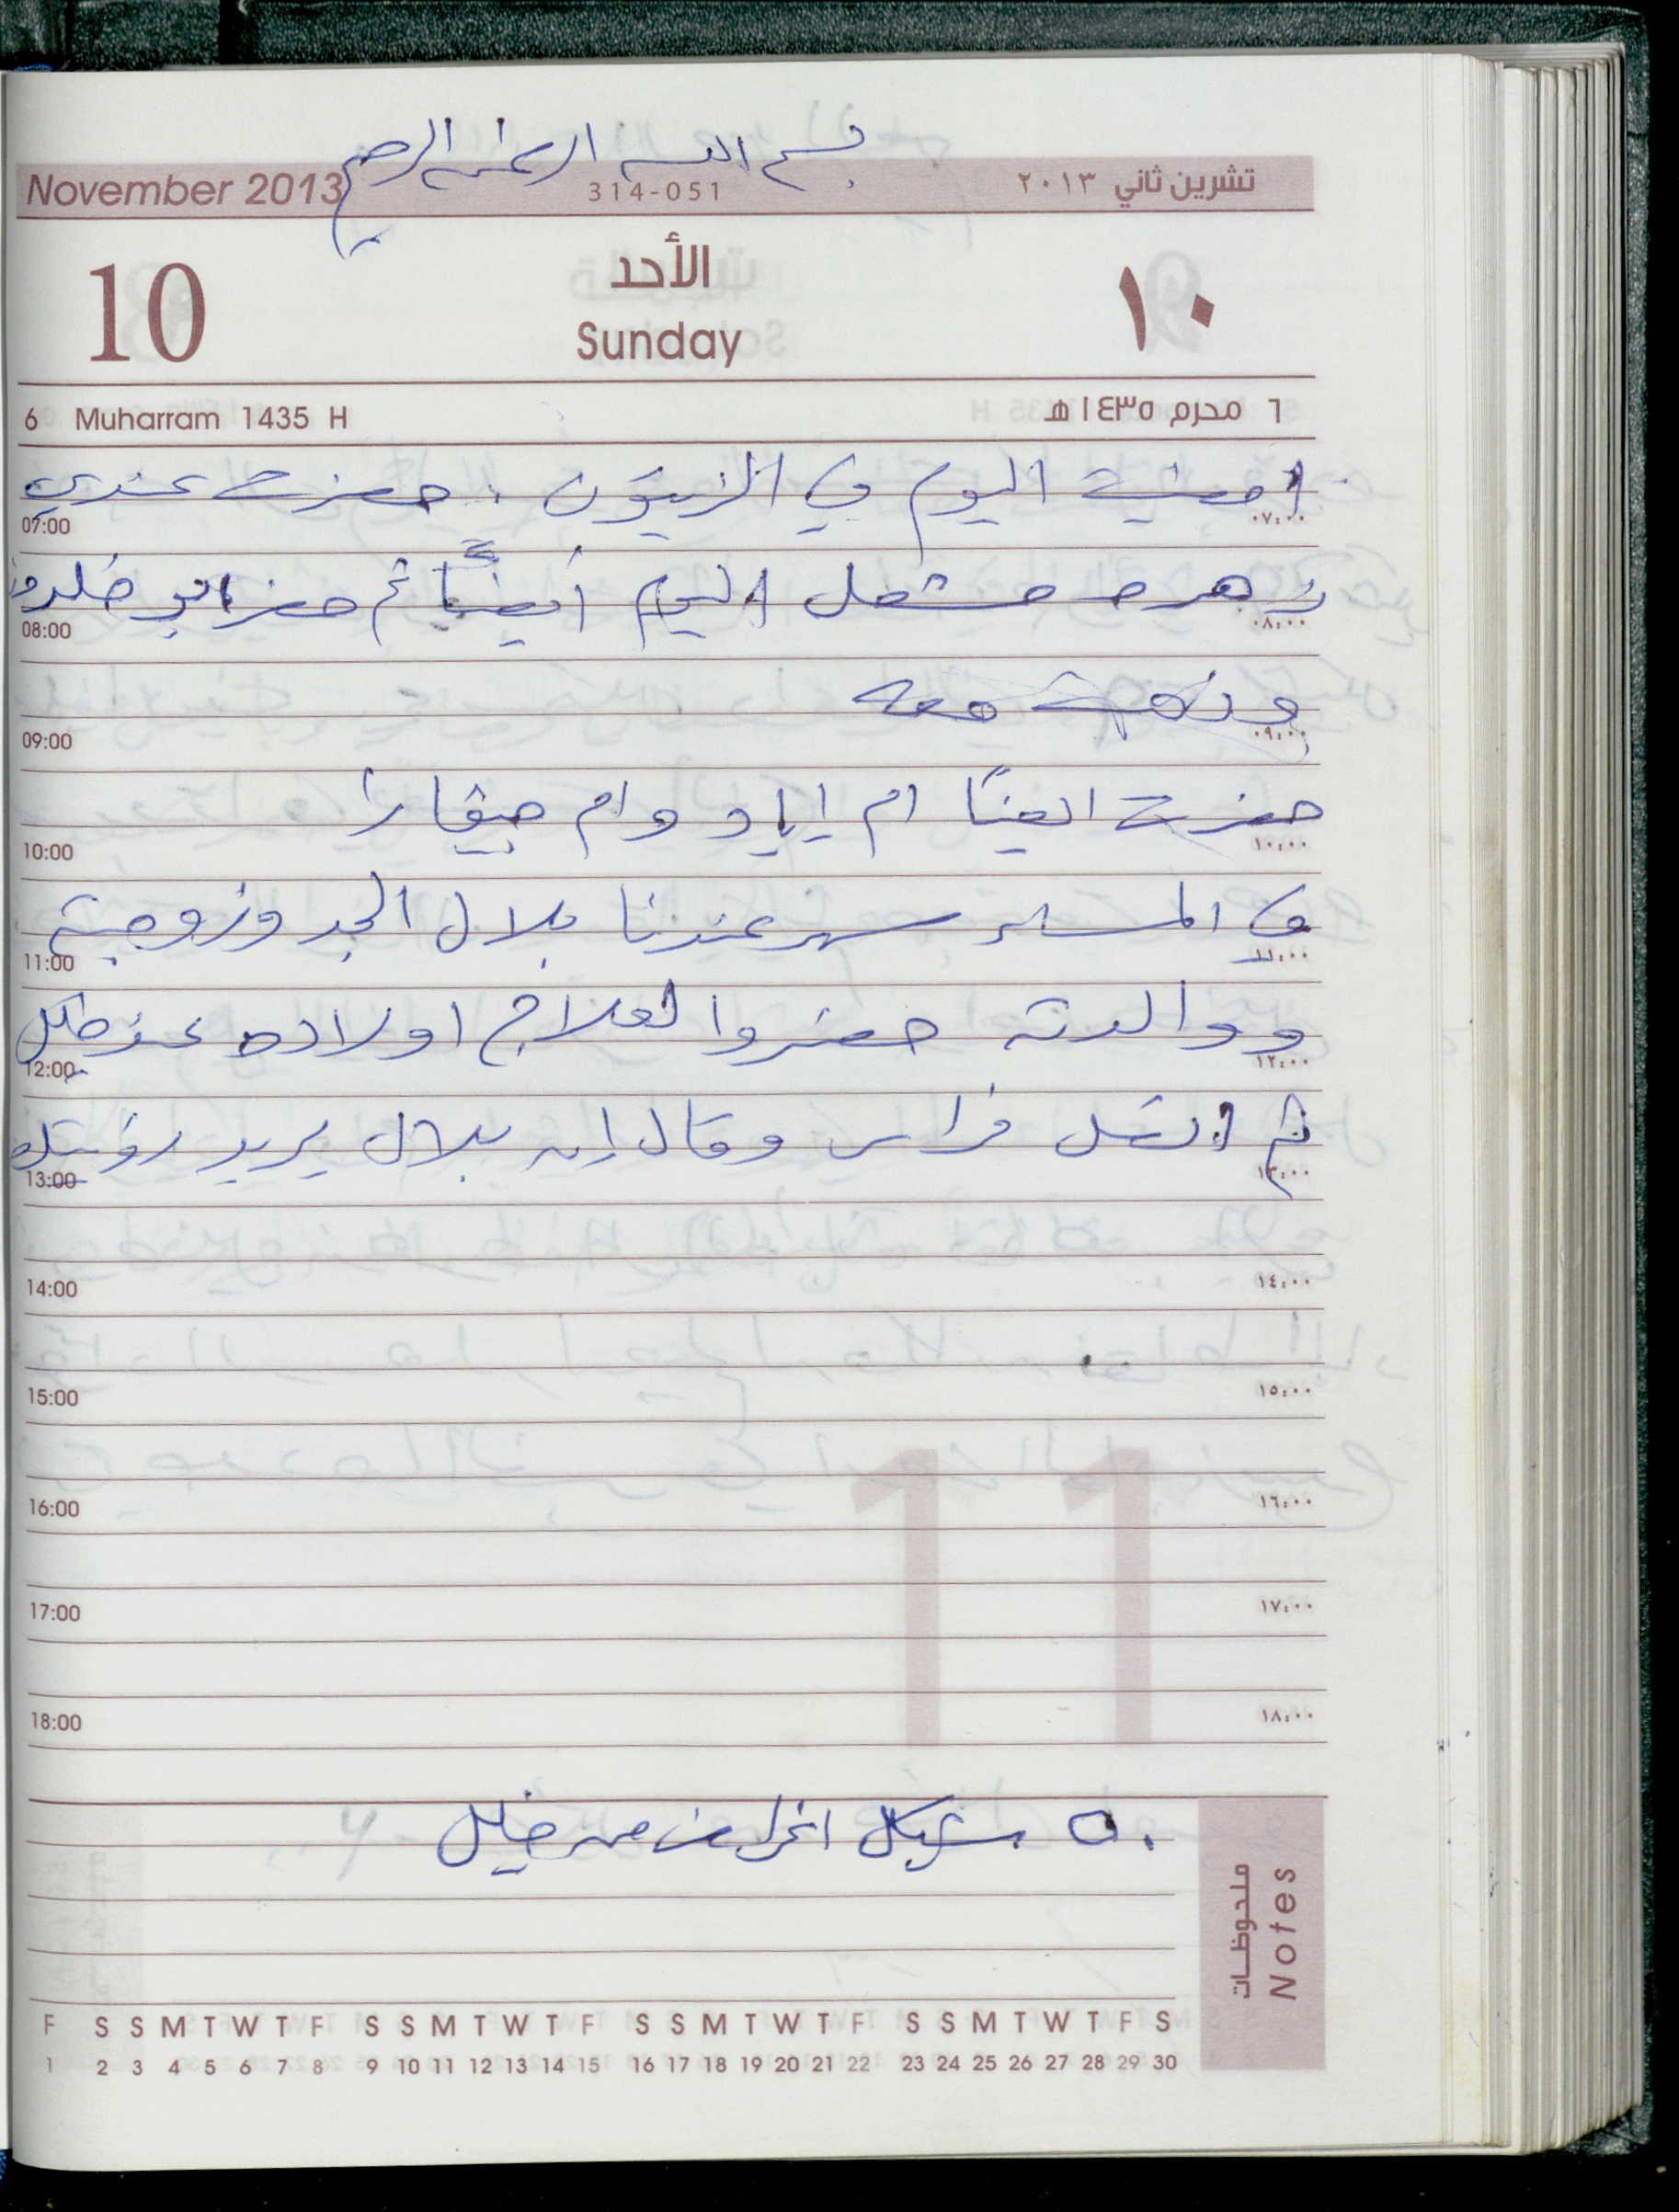 بسم الله الرحمن الرحيم
November 2013 314-051 تشرين ثاني ٢٠١٣
10 الأحد ١٠
Sunday
6 Muharram 1435 H ٦ محرم ١٤٣٥ هـ
امضيت اليوم في الزيتون . حضرت عندي
07:00 ٠٧:٠٠
زهره مشعل اليوم أيضاً ثم حضر ابو خلدون
08:00 ٠٨:٠٠
وذهبت معه
09:00 ٠٩:٠٠
حضرت ايضاً ام اياد وام
10:00 ١٠:٠٠
في المساء سهر عندنا بلال الجد وزوجته
11:00 ١١:٠٠
ووالدته حضروا لعلاج اولاده عند خليل
12:00 ١٢:٠٠
ثم اتصل فراس وقال إن بلال يريد رؤيتك
13:00 ١٣:٠٠
14:00 ١٤:٠٠
15:00 ١٥:٠٠
16:00 ١٦:٠٠
17:00 ١٧:٠٠
18:00 ١٨:٠٠
٥٠ شيكل من خليل
ملحوظات Notes
F S S M T W T F S S M T W T F S S M T W T F S S M T W T F S
1 2 3 4 5 6 7 8 9 10 11 12 13 14 15 16 17 18 19 20 21 22 23 24 25 26 27 28 29 30